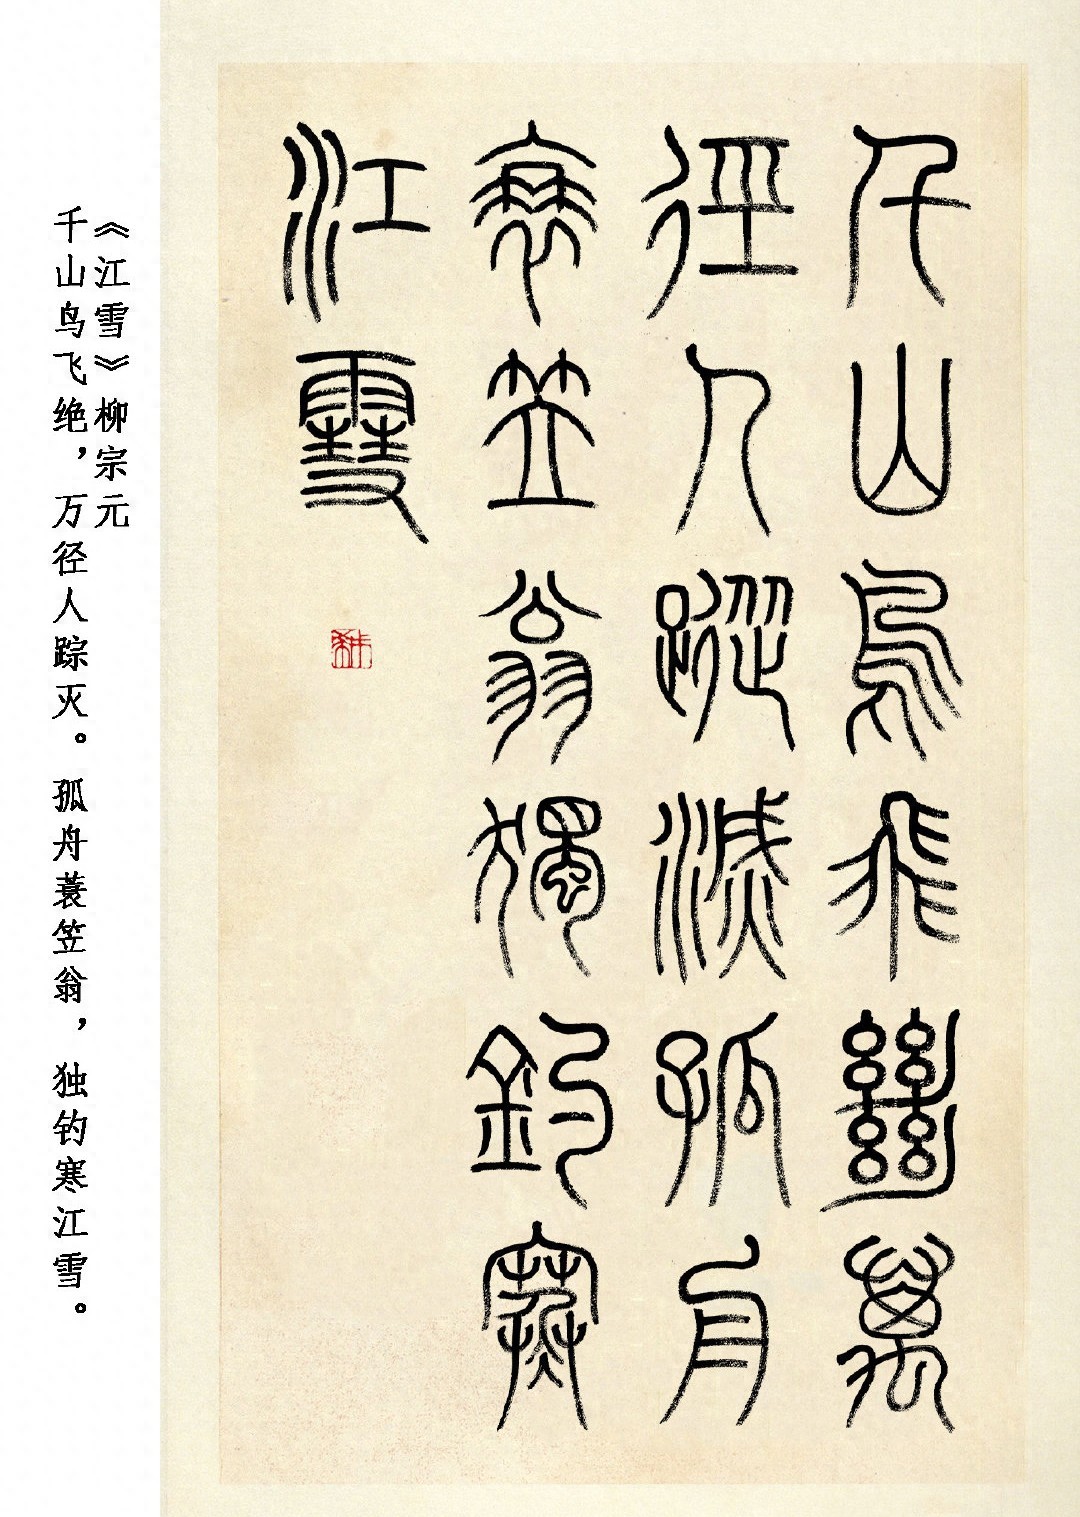 千山鳥飛絕萬
徑人蹤滅孤舟
蓑笠翁獨釣寒
江雪
《江雪》柳宗元
千山鸟飞绝，万径人踪灭。孤舟蓑笠翁，独钓寒江雪。